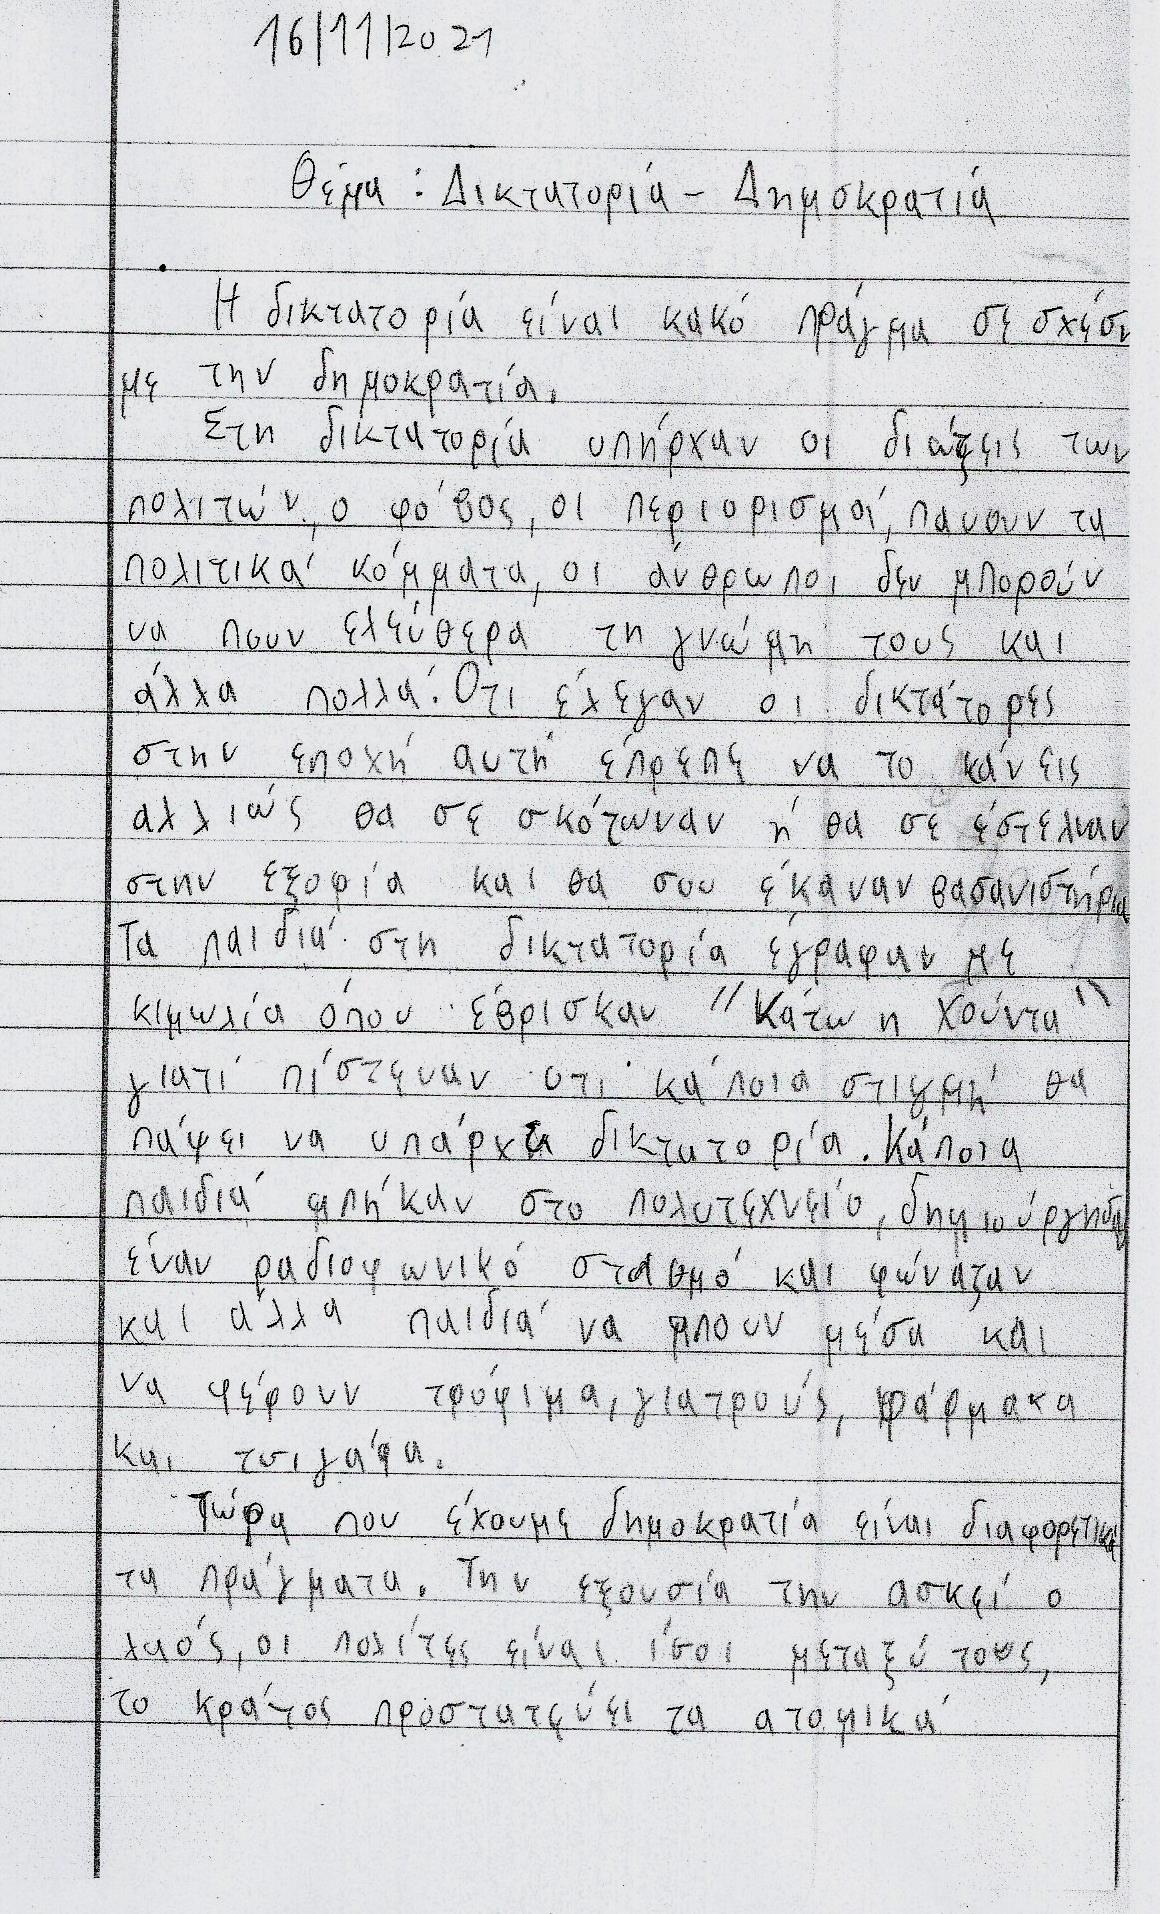 16/11/2021
Θέμα : Δικτατορία - Δημοκρατία
Η δικτατορία είναι κακό πράγμα σε σχέση
με την δημοκρατία.
Στη δικτατορία υπήρχαν οι διώξεις των
πολιτών, ο φόβος, οι περιορισμοί, παυουν τα
πολιτικά κόμματα, οι άνθρωποι δεν μπορούν
να πουν ελεύθερα τη γνώμη τους και
άλλα πολλά. Οτι έλεγαν οι δικτάτορες
στην εποχή αυτή έπρεπε να το κάνεις
αλλιώς θα σε σκότωναν ή θα σε έστελναν
στην εξορία και θα σου έκαναν βασανιστήρια
Τα παιδιά στη δικτατορία έγραφαν με
κιμωλία όπου έβρισκαν "Κάτω η Χούντα"
γιατί πίστευαν οτι κάποια στιγμή θα
πάψει να υπάρχει δικτατορία. Κάποια
παιδιά μπήκαν στο πολυτεχνείο,
έναν ραδιοφωνικό σταθμό και φώναζαν
και άλλα παιδιά να μπουν μέσα και
να φέρουν τρόφιμα, γιατρούς, φάρμακα
και τσιγάρα.
Τώρα που έχουμε δημοκρατία είναι διαφορετικά
τα πράγματα. Την εξουσία την ασκεί ο
λαός, οι πολίτες είναι ίσοι μεταξύ τους,
το κράτος προστατεύει τα ατομικά